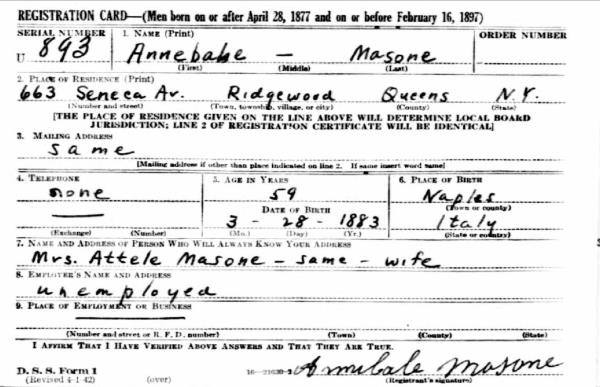 REGISTRATION CARD—(Men born on or after April 28, 1877 and on or before February 16, 1897)
SERIAL NUMBER 1. NAME (Print) ORDER NUMBER
U 893 Annebale — Masone
(First) (Middle) (Last)
2. PLACE OF RESIDENCE (Print)
663 Seneca Av. Ridgewood Queens N.Y.
(Number and street) (Town, township, village, or city) (County) (State)
[THE PLACE OF RESIDENCE GIVEN ON THE LINE ABOVE WILL DETERMINE LOCAL BOARD
JURISDICTION; LINE 2 OF REGISTRATION CERTIFICATE WILL BE IDENTICAL]
3. MAILING ADDRESS
same
[Mailing address if other than place indicated on line 2. If same insert word same]
4. TELEPHONE 5. AGE IN YEARS 6. PLACE OF BIRTH
none 59 Naples
DATE OF BIRTH (Town or county)
3 - 28 - 1883 Italy
(Exchange) (Number) (Mo.) (Day) (Yr.) (State or country)
7. NAME AND ADDRESS OF PERSON WHO WILL ALWAYS KNOW YOUR ADDRESS
Mrs. Attele Masone - same - wife
8. EMPLOYER'S NAME AND ADDRESS
unemployed
9. PLACE OF EMPLOYMENT OR BUSINESS
(Number and street or R. F. D. number) (Town) (County) (State)
I AFFIRM THAT I HAVE VERIFIED ABOVE ANSWERS AND THAT THEY ARE TRUE.
D. S. S. Form 1 Annibale Masone
(Revised 4-1-42) (over) (Registrant's signature)